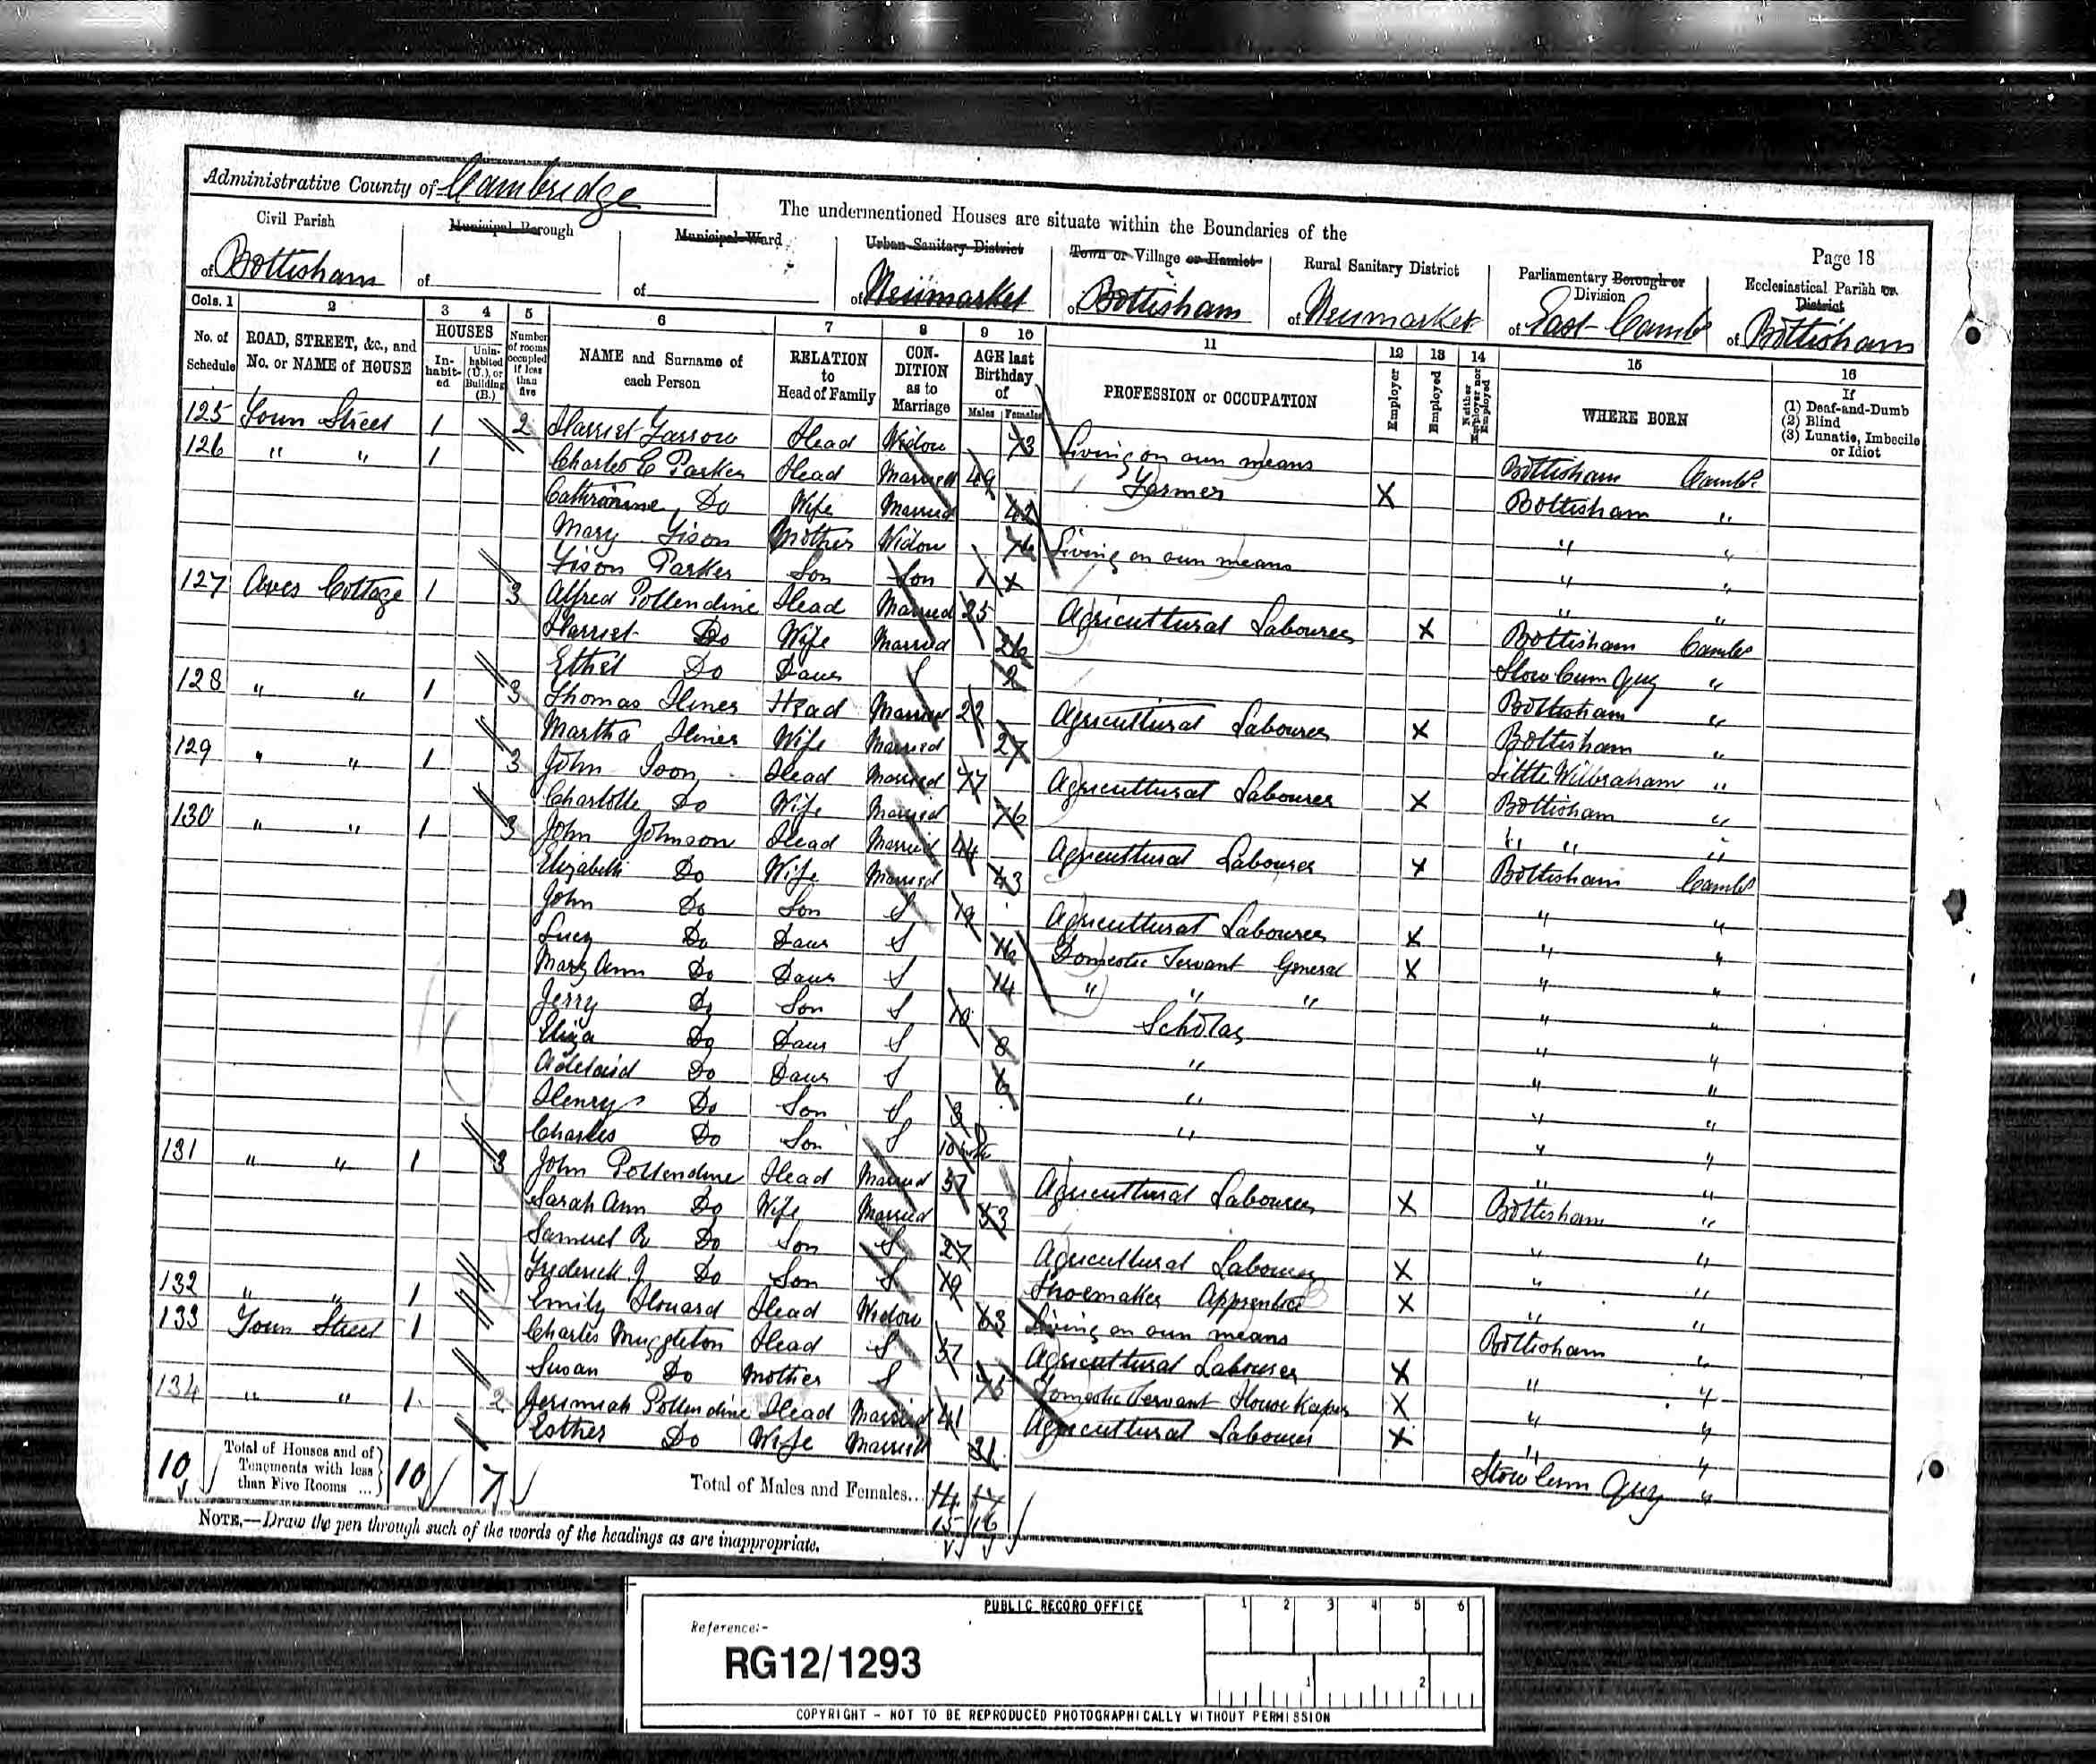 Administrative County of Cambridge
The undermentioned Houses are situate within the Boundaries of the
Page 18
Civil Parish
of Bottisham
Municipal Borough
of
Municipal Ward
of
Urban Sanitary District
of Newmarket
Town or Village or Hamlet
of Bottisham
Rural Sanitary District
of Newmarket
Parliamentary Borough or Division
of East Cambs
Ecclesiastical Parish or District
of Bottisham
Cols. 1 2 3 4 5 6 7 8 9 10 11 12 13 14 15 16
No. of Schedule
ROAD, STREET, &c., and No. or NAME of HOUSE
HOUSES
In-habit-ed
Unin-habited (U.), or Building (B.)
Number of rooms occupied if less than five
NAME and Surname of each Person
RELATION to Head of Family
CON-DITION as to Marriage
AGE last Birthday of
Males Females
PROFESSION or OCCUPATION
Employer
Employed
Neither Employer nor Employed
WHERE BORN
If (1) Deaf-and-Dumb (2) Blind (3) Lunatic, Imbecile or Idiot
125 Street 1 2 Harriet Head Widow 73 Living on own means Bottisham Cambs.
126 " " 1 Charles E Parker Head Married 49 Farmer X Bottisham "
Do Wife Married 42 " "
Mary Fison Mother Widow 76 Living on own means " "
Fison Parker Son Son 1 X " "
127 Cottage 1 3 Alfred Pollendine Head Married 25 Agricultural Labourer X Bottisham Cambs
Harriet Do Wife Married 26 Stow Cum Quy "
Ethel Do Daur S 2 Bottisham "
128 " " 1 3 Thomas Hines Head Married 22 Agricultural Labourer X Bottisham "
Martha Hines Wife Married 27 Little Wilbraham "
129 " " 1 3 John Head Married 77 Agricultural Labourer X Bottisham "
Charlotte Do Wife Married 76 " " "
130 " " 1 3 John Johnson Head Married 44 Agricultural Labourer X Bottisham Cambs
Elizabeth Do Wife Married 43 " "
John Do Son S 19 Agricultural Labourer X " "
Lucy Do Daur S 16 Domestic Servant General X " "
Mary Ann Do Daur S 14 " " " " "
Jerry Do Son S 10 Scholar " "
Eliza Do Daur S 8 " " "
Adelaid Do Daur S 6 " " "
Henry Do Son S 3 " " "
Charles Do Son S 10 " "
131 " " 1 3 John Pollendine Head Married 57 Agricultural Labourer X Bottisham "
Sarah Ann Do Wife Married 53 " "
Samuel R Do Son S 27 Agricultural Labourer X " "
Frederick J Do Son S 19 Shoemaker Apprentice X " "
132 " " 1 Emily Howard Head Widow 63 Living on own means Bottisham "
133 Street 1 Charles Muggleton Head S 37 Agricultural Labourer X " "
Susan Do Mother S 75 Domestic Servant House Keeper X " "
134 " " 1 2 Jerimiah Pollendine Head Married 41 Agricultural Labourer X " "
Esther Do Wife Married 31 Stow Cum Quy "
10 Total of Houses and of Tenements with less than Five Rooms ... 10 7 Total of Males and Females... 14 17
15 16
NOTE.—Draw the pen through such of the words of the headings as are inappropriate.
PUBLIC RECORD OFFICE
1 2 3 4 5 6
Reference:-
RG12/1293
1 2
COPYRIGHT - NOT TO BE REPRODUCED PHOTOGRAPHICALLY WITHOUT PERMISSION